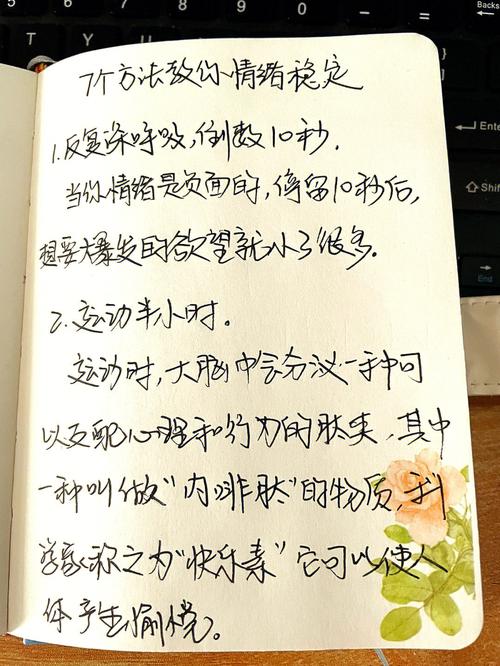 T Y U
Back
Enter
Shift
End
7个方法教你情绪稳定
1.反复深呼吸,倒数10秒.
当你情绪是负面的,停留10秒后,
想要大爆发的欲望就小了很多.
2.运动半小时。
运动时,大脑中会分泌一种可
以支配心理和行为的肽类,其中
一种叫做"内啡肽"的物质,科
学家称之为"快乐素"它可以使人
体产生愉悦。